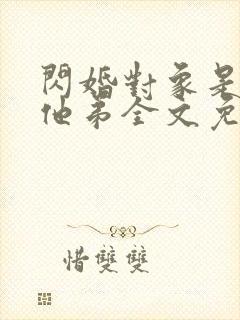 閃婚對象是
他弟全文免
惜雙雙